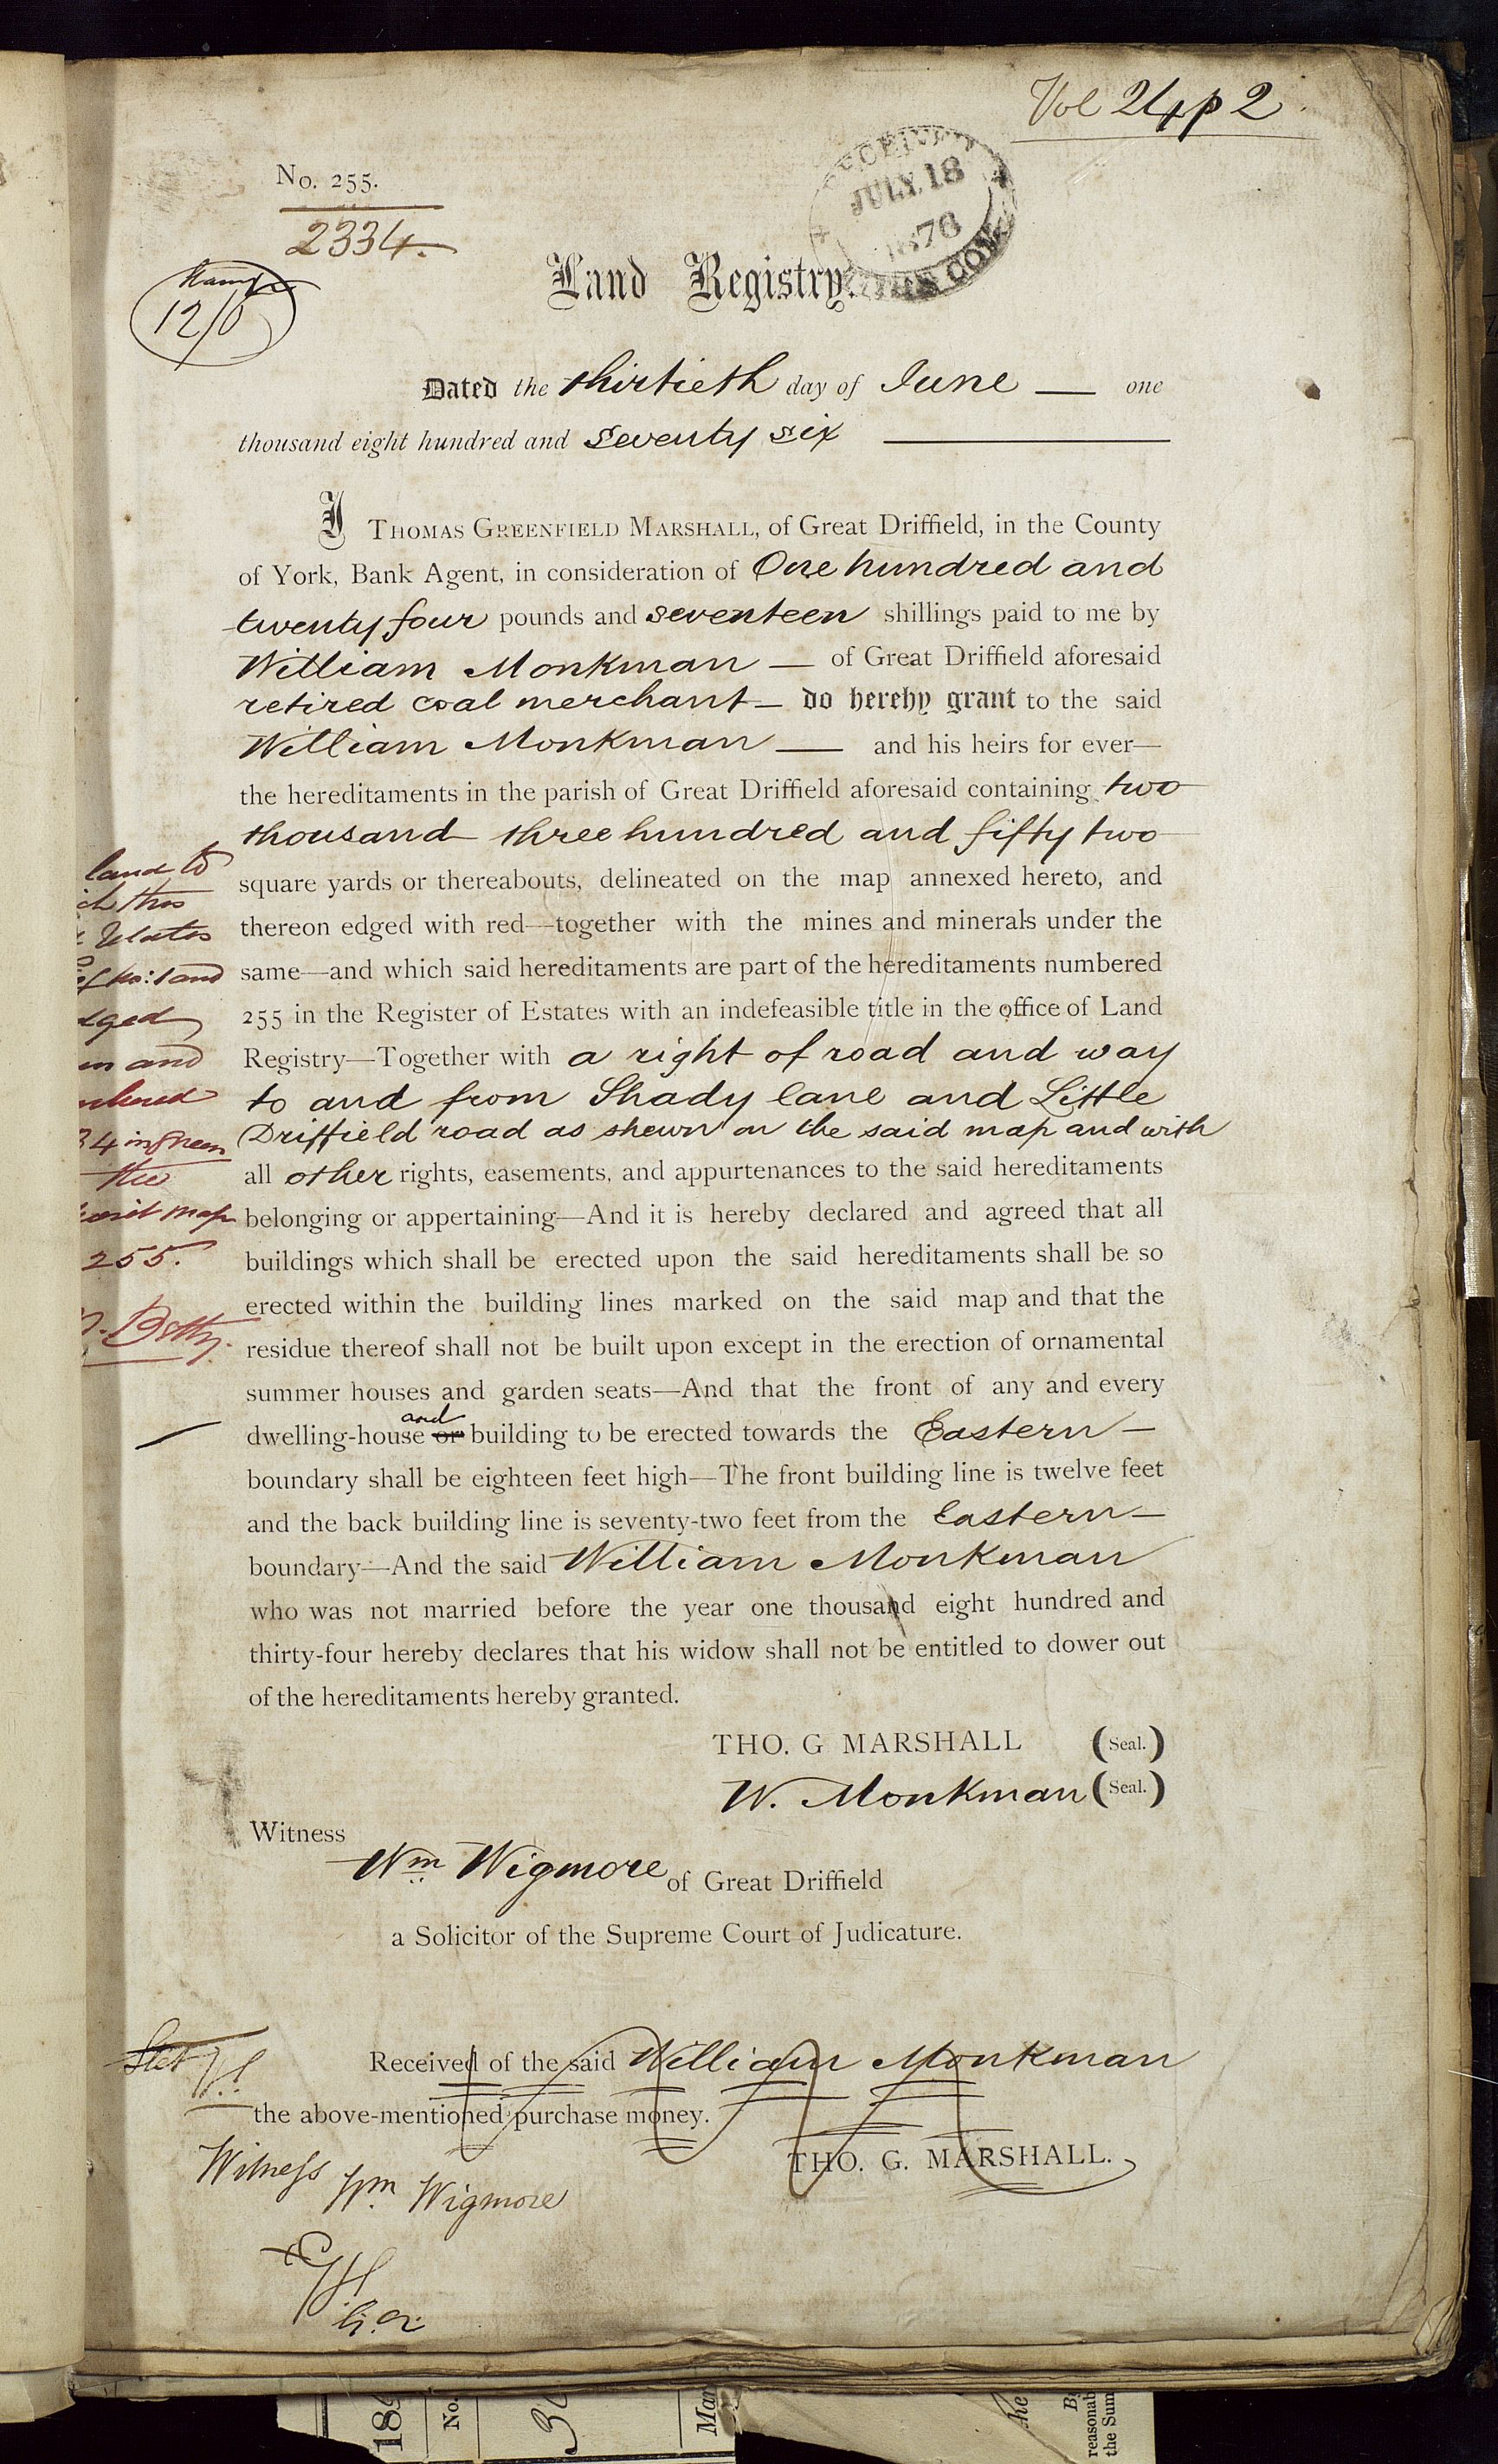 Vol 24 p 2
No. 255.
2334.
Stamp
12/0
JULY. 18
1876
Land Registry.
Dated the thirtieth day of June — one
thousand eight hundred and seventy six
I THOMAS GREENFIELD MARSHALL, of Great Driffield, in the County
of York, Bank Agent, in consideration of One hundred and
twenty four pounds and seventeen shillings paid to me by
William Monkman — of Great Driffield aforesaid
retired coal merchant — do hereby grant to the said
William Monkman — and his heirs for ever—
the hereditaments in the parish of Great Driffield aforesaid containing two
thousand three hundred and fifty two
square yards or thereabouts, delineated on the map annexed hereto, and
thereon edged with red—together with the mines and minerals under the
same—and which said hereditaments are part of the hereditaments numbered
255 in the Register of Estates with an indefeasible title in the office of Land
Registry—Together with a right of road and way
to and from Shady lane and Little
Driffield road as shewn on the said map and with
all other rights, easements, and appurtenances to the said hereditaments
belonging or appertaining—And it is hereby declared and agreed that all
buildings which shall be erected upon the said hereditaments shall be so
erected within the building lines marked on the said map and that the
residue thereof shall not be built upon except in the erection of ornamental
summer houses and garden seats—And that the front of any and every
dwelling-house or and building to be erected towards the Eastern —
boundary shall be eighteen feet high—The front building line is twelve feet
and the back building line is seventy-two feet from the Eastern —
boundary—And the said William Monkman
who was not married before the year one thousand eight hundred and
thirty-four hereby declares that his widow shall not be entitled to dower out
of the hereditaments hereby granted.
land to
ch this
relates
land
dged
and
34 in green
the
map
255.
THO. G MARSHALL (Seal.)
W. Monkman (Seal.)
Witness
Wm Wigmore of Great Driffield
a Solicitor of the Supreme Court of Judicature.
Stet
Received of the said William Monkman
the above-mentioned purchase money.
THO. G. MARSHALL.
Witness Wm. Wigmore
189
No.
Mar
the
reasonab
the Sum